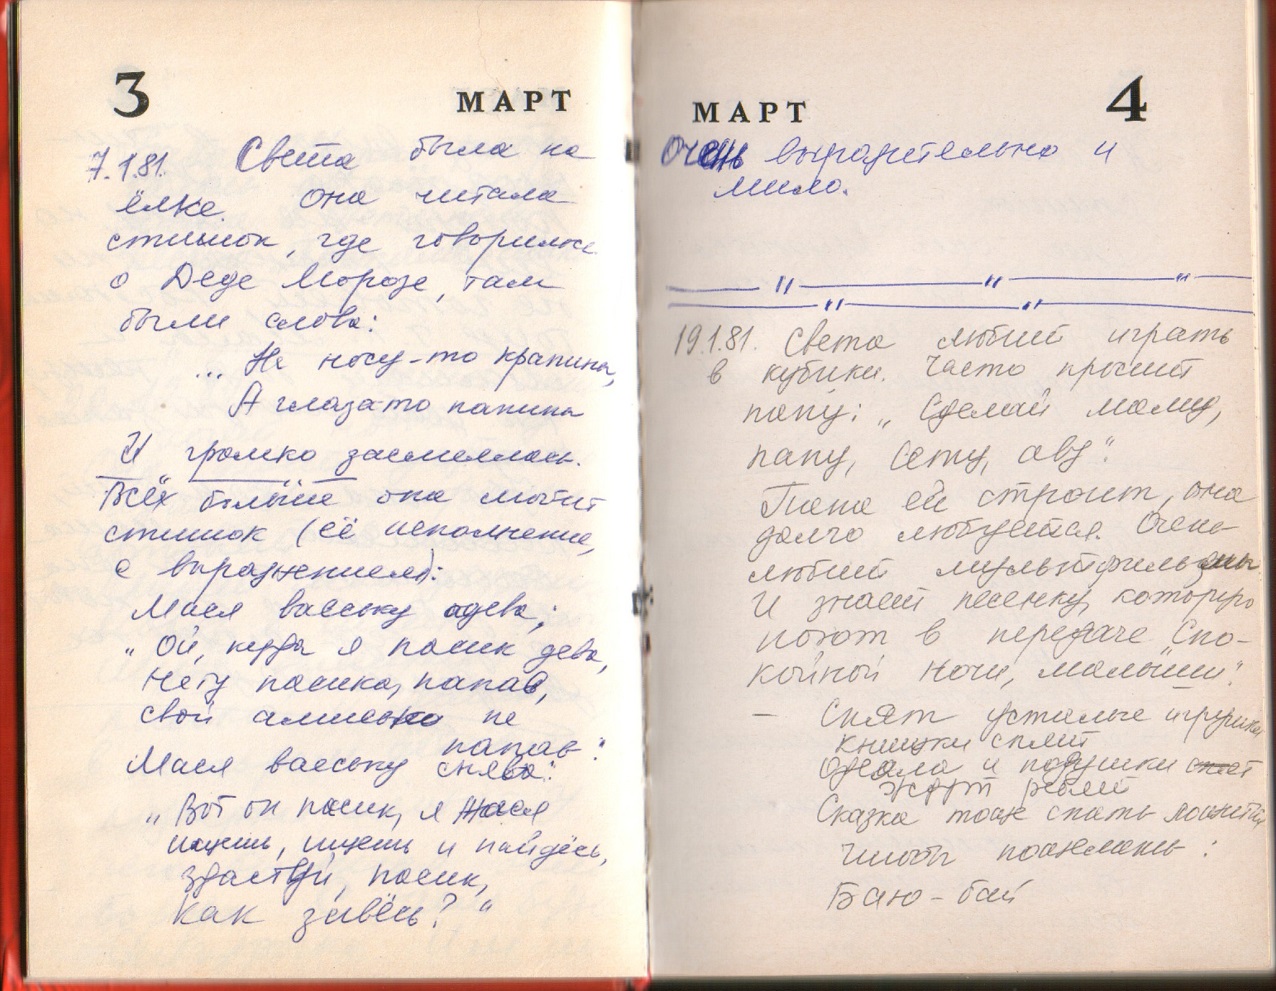 3 МАРТ
7.1.81. Света была на
ёлке. Она читала
стишок, где говорилось
о Деде Морозе, там
были слова:
... На носу-то крапины,
А глаза то папины
И громко засмеялась.
Всех больше она любит
стишок (её исполнение,
с выражением):
Мася ваську адева,
"Ой, куда я пасик дева,
Нету пасика, папав,
свой
не
папав".
Мася ваську снява:
"Вот он пасик, я Мася
ищешь, ищешь и найдёсь,
здаствуй, пасик,
Как зивёсь?"
МАРТ 4
Очень выразительно и
мило.
19.1.81. Света любит играть
в кубики. Часто просит
папу: "Сделай маму,
папу, Сету, аву".
Папа ей строит, она
долго любуется. Очень
любит мультфильмы
И знает песенку, которую
поют в передаче Спо-
койной ночи, малыши".
– Спят усталые игрушки
книжки спят
Одеяла и подушки
ждут ребят
Сказка тоже спать ложится
Чтобы :
Баю-бай